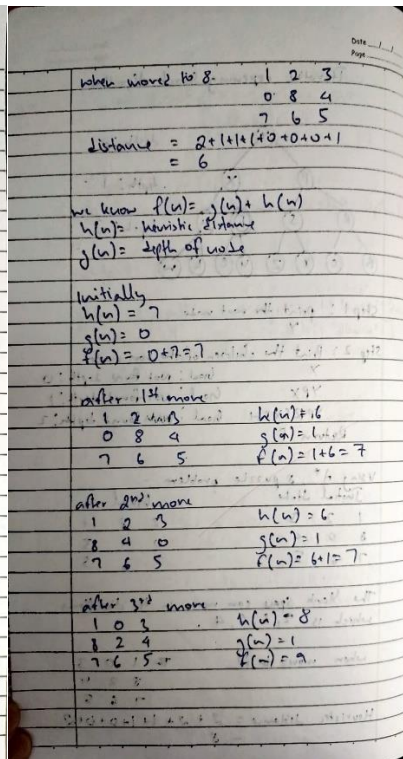 Date / /
Page
when moved to 8. 1 2 3
0 8 4
7 6 5
distance = 2+1+1+1+0+0+0+1
= 6
we know f(n) = g(n) + h(n)
h(n) = heuristic distance
g(n) = depth of node
Initially
h(n) = 7
g(n) = 0
f(n) = 0+7=7
after 1st move
1 2 3 h(n) = 6
0 8 4 g(n) = 1
7 6 5 f(n) = 1+6 = 7
after 2nd move
1 2 3 h(n) = 6
8 4 0 g(n) = 1
7 6 5 f(n) = 6+1 = 7
after 3rd move
1 0 3 h(n) = 8
8 2 4 g(n) = 1
7 6 5 f(n) = 9